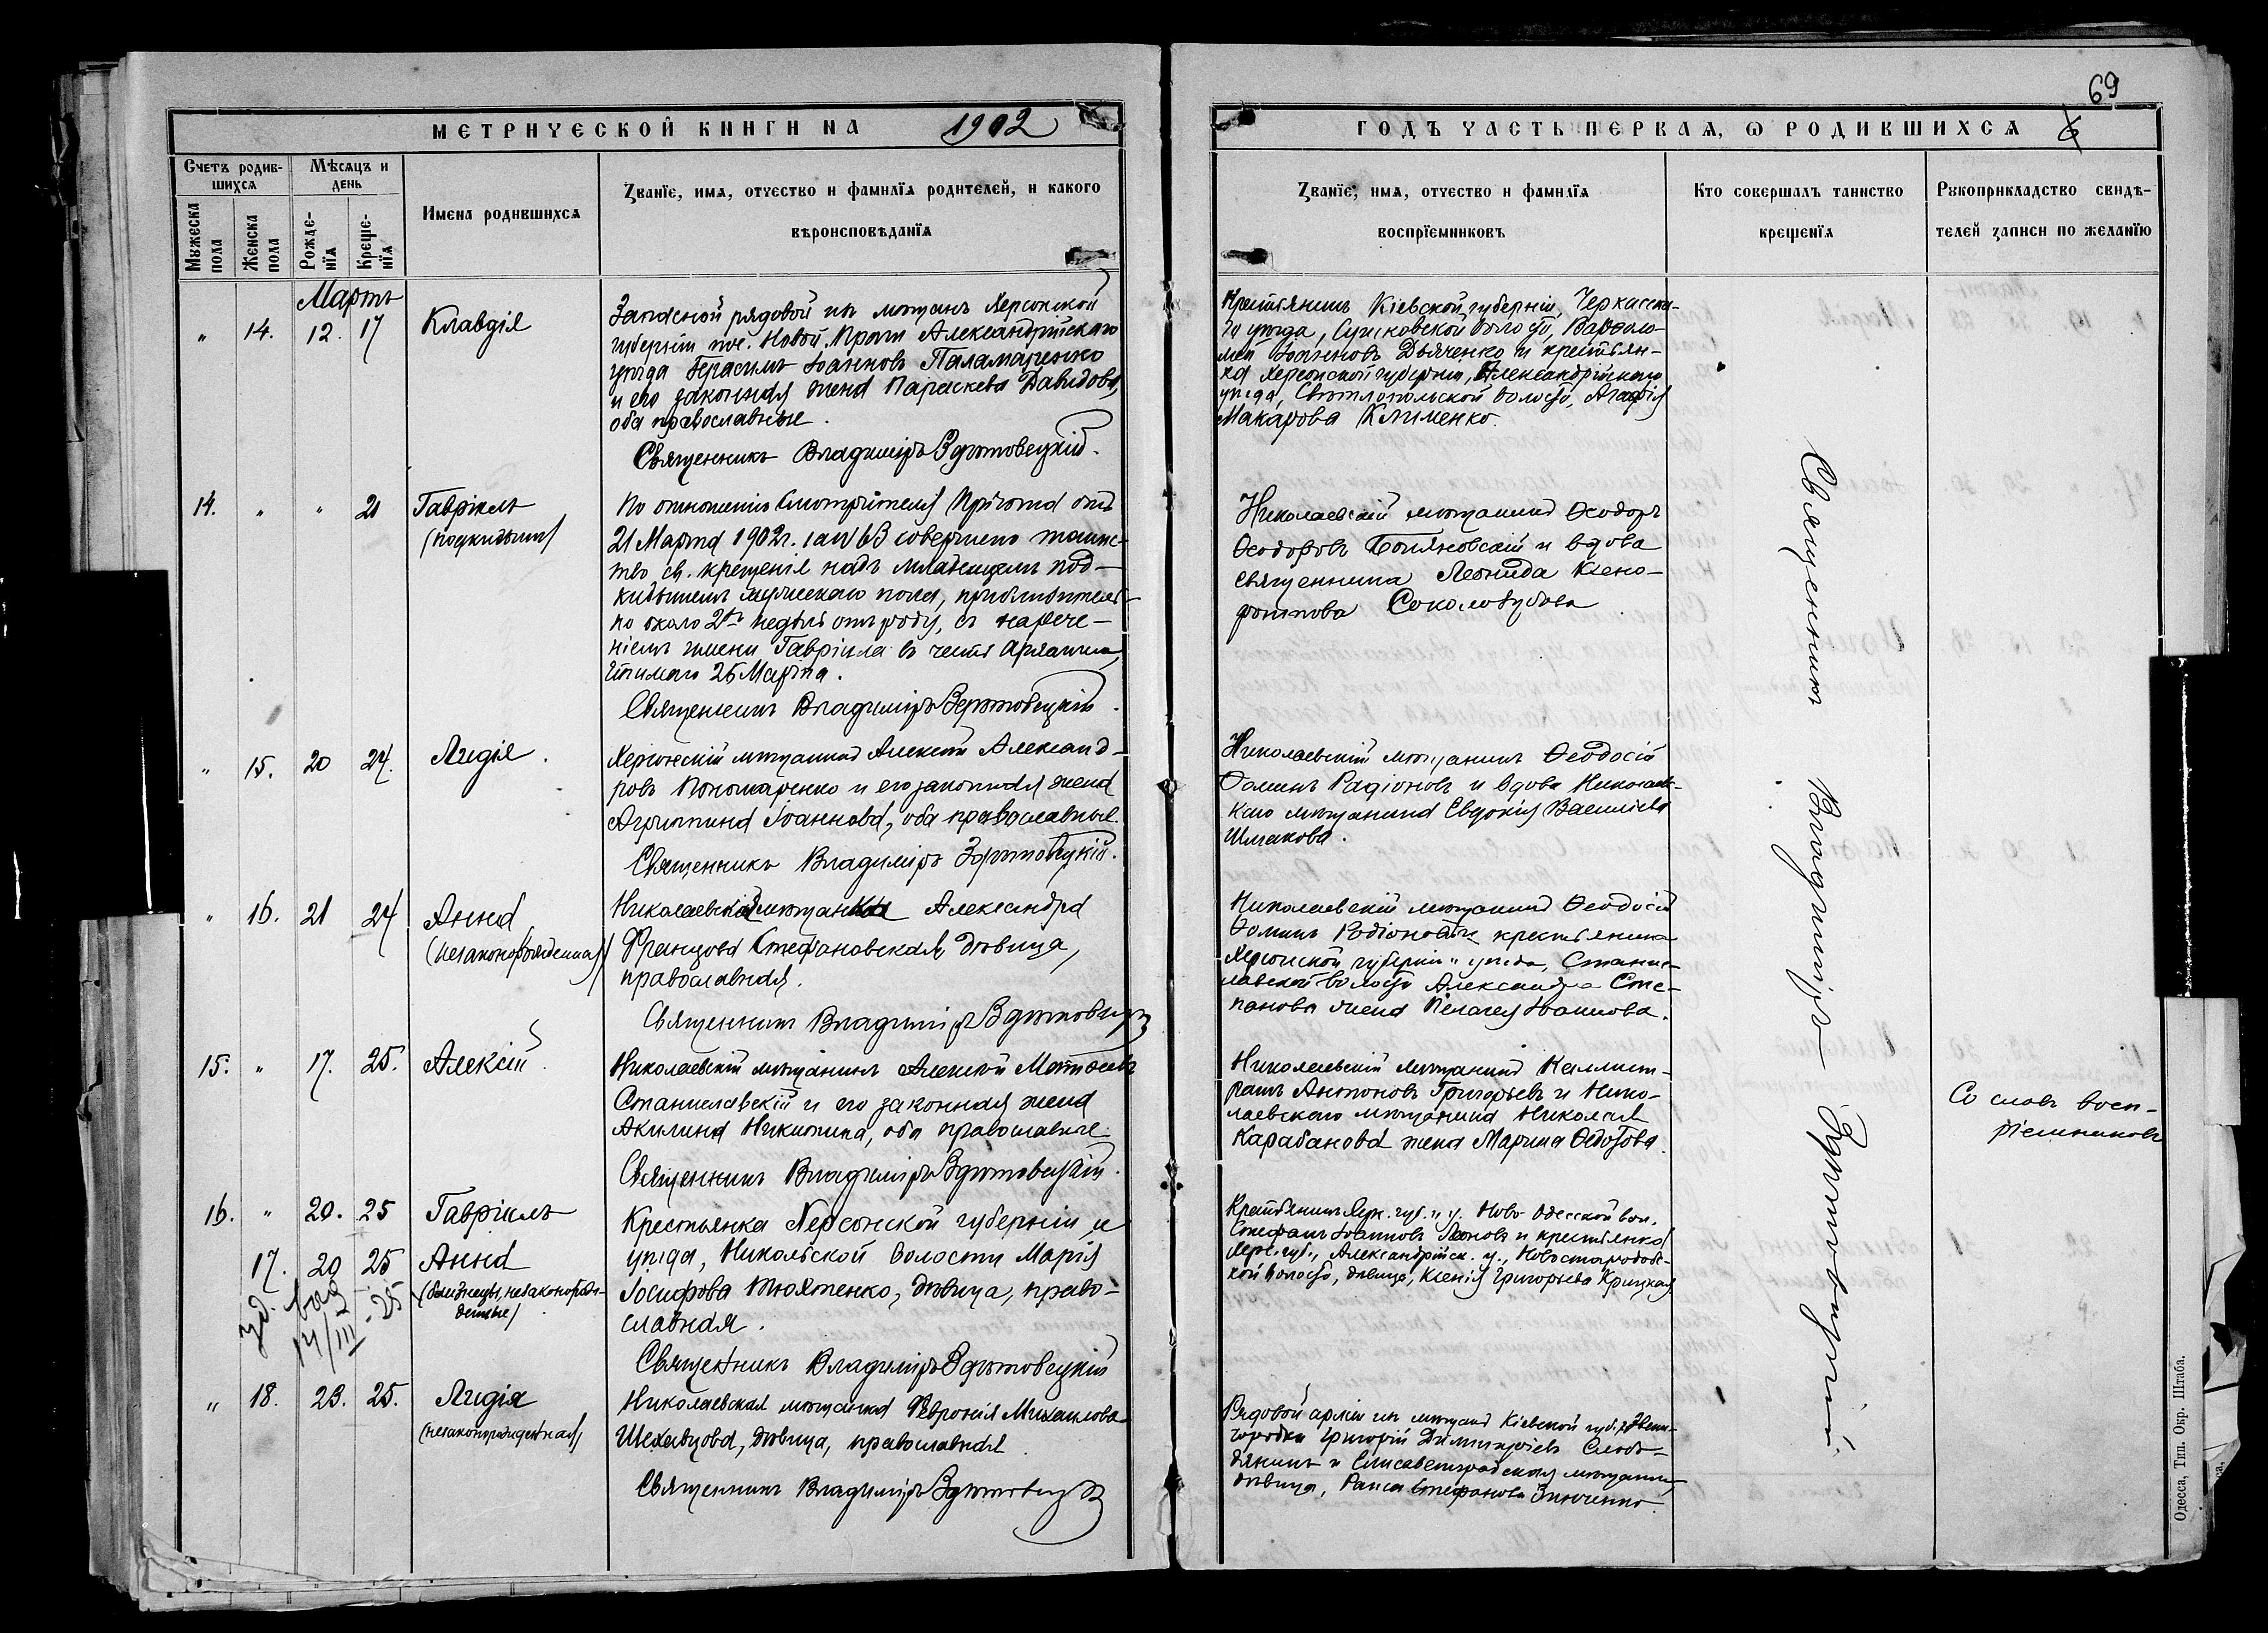 69
МЕТРИЧЕСКОЙ КНИГИ НА 1902
ГОДЪ ЧАСТЬ ПЕРВАЯ, Ѡ РОДИВШИХСЯ
Счетъ родив-
шихся
Мѣсяцъ и
день
Мужеска
пола
Женска
пола
Рожде-
нїя
Креще-
нїя
Имена родившихся
Званїе, имя, отчество и фамилїя родителей, и какого
вѣроисповѣданїя
Званїе, имя, отчество и фамилїя
воспрїемниковъ
Кто совершалъ таинство
крещенїя
Рукоприкладство свидѣ-
телей записи по желанїю
Мартъ
" 14. 12. 17 Клавдія
Запасной рядовой изъ мѣщанъ Херсонской
губерніи пос. Новой Праги Александрійскаго
уѣзда Герасимъ Іоанновъ Паламаренко
и его законная жена Параскева Давидова,
оба православные.
Священникъ Владиміръ Здѣтовецкій.
Крестьянинъ Кіевской губерніи, Черкасска-
го уѣзда, волости, Варѳоло-
мей Іоанновъ Дьяченко и крестьян-
ка Херсонской губерніи, Александрійскаго
уѣзда, Свѣтлопольской волости, Агафія
Макарова Клименко.
14. " " 21 Гавріилъ
(подкидышъ)
По отношенію Смотрителя Пріюта отъ
21 Марта 1902 г. за № 63 совершено таинс-
тво св. крещенія надъ младенцемъ под-
кидышемъ мужескаго пола, приблизитель-
но около 2хъ недѣль отъ роду, съ нарече-
ніемъ имени Гавріила въ честь Архангела,
чтимаго 26 Марта.
Священникъ Владиміръ Здѣтовецкій.
Николаевскій мѣщанинъ Ѳеодоръ
Ѳеодоровъ и вдова
священника Леонида Ксено-
фонтова
" 15. 20 24. Лидія.
Херсонскій мѣщанинъ Алексѣй Александ-
ровъ Пономаренко и его законная жена
Агриппина Іоаннова, оба православные.
Священникъ Владиміръ Здѣтовецкій.
Николаевскій мѣщанинъ Ѳеодосій
Ѳоминъ Радіоновъ и вдова Николаевс-
каго мѣщанина Евдокія Васильева
Шмакова.
" 16. 21 24 Анна
(незаконорожденная)
Николаевская мѣщанка Александра
Францова Стефановская, дѣвица,
православная.
Священникъ Владиміръ Здѣтовецкій
Николаевскій мѣщанинъ Ѳеодосій
Ѳоминъ Родіоновъ и крестьянина
Херсонской губерніи и уѣзда, Станис-
лавской волости Александра Сте-
панова жена Пелагея Іоаннова.
15. " 17. 25. Алексій.
Николаевскій мѣщанинъ Алексѣй Матѳеевъ
Станиславскій и его законная жена
Акилина Никитина, оба православные.
Священникъ Владиміръ Здѣтовецкій.
Николаевскій мѣщанинъ Каллист-
ратъ Антоновъ Григорьевъ и Нико-
лаевскаго мѣщанина Николая
Карабанова жена Марина Ѳедотова.
Со словъ восп-
ріемниковъ
16. " 20. 25 Гавріилъ
17. 20 25 Анна
(близнецы, незаконорож-
денные)
14/III 25
Крестьянка Херсонской губерніи и
уѣзда, Никольской волости Марія
Іосифова дѣвица, право-
славная.
Священникъ Владиміръ Здѣтовецкій
Крестьянинъ Херс. губ. и у. Ново-Одесской вол.
Стефанъ Іоанновъ Леоновъ и крестьянка
Херс. губ., Александрійск. у., Новостародуб-
ской волости, дѣвица, Ксенія Григорьева Крицкая
" 18. 23. 25. Лидія
(незаконорожденная)
Николаевская мѣщанка Февронія Михаилова
Шехавцова, дѣвица, православная
Священникъ Владиміръ Здѣтовецкій
Рядовой арміи изъ мѣщанъ Кіевской губ. г. Звени-
городки Григорій Димитріевъ Слобо-
дянинъ и Елисаветградская мѣщанка,
дѣвица, Раиса Стефанова Зинченко.
Священникъ Владиміръ Здѣтовецкій.
Одесса, Тип. Окр. Штаба.